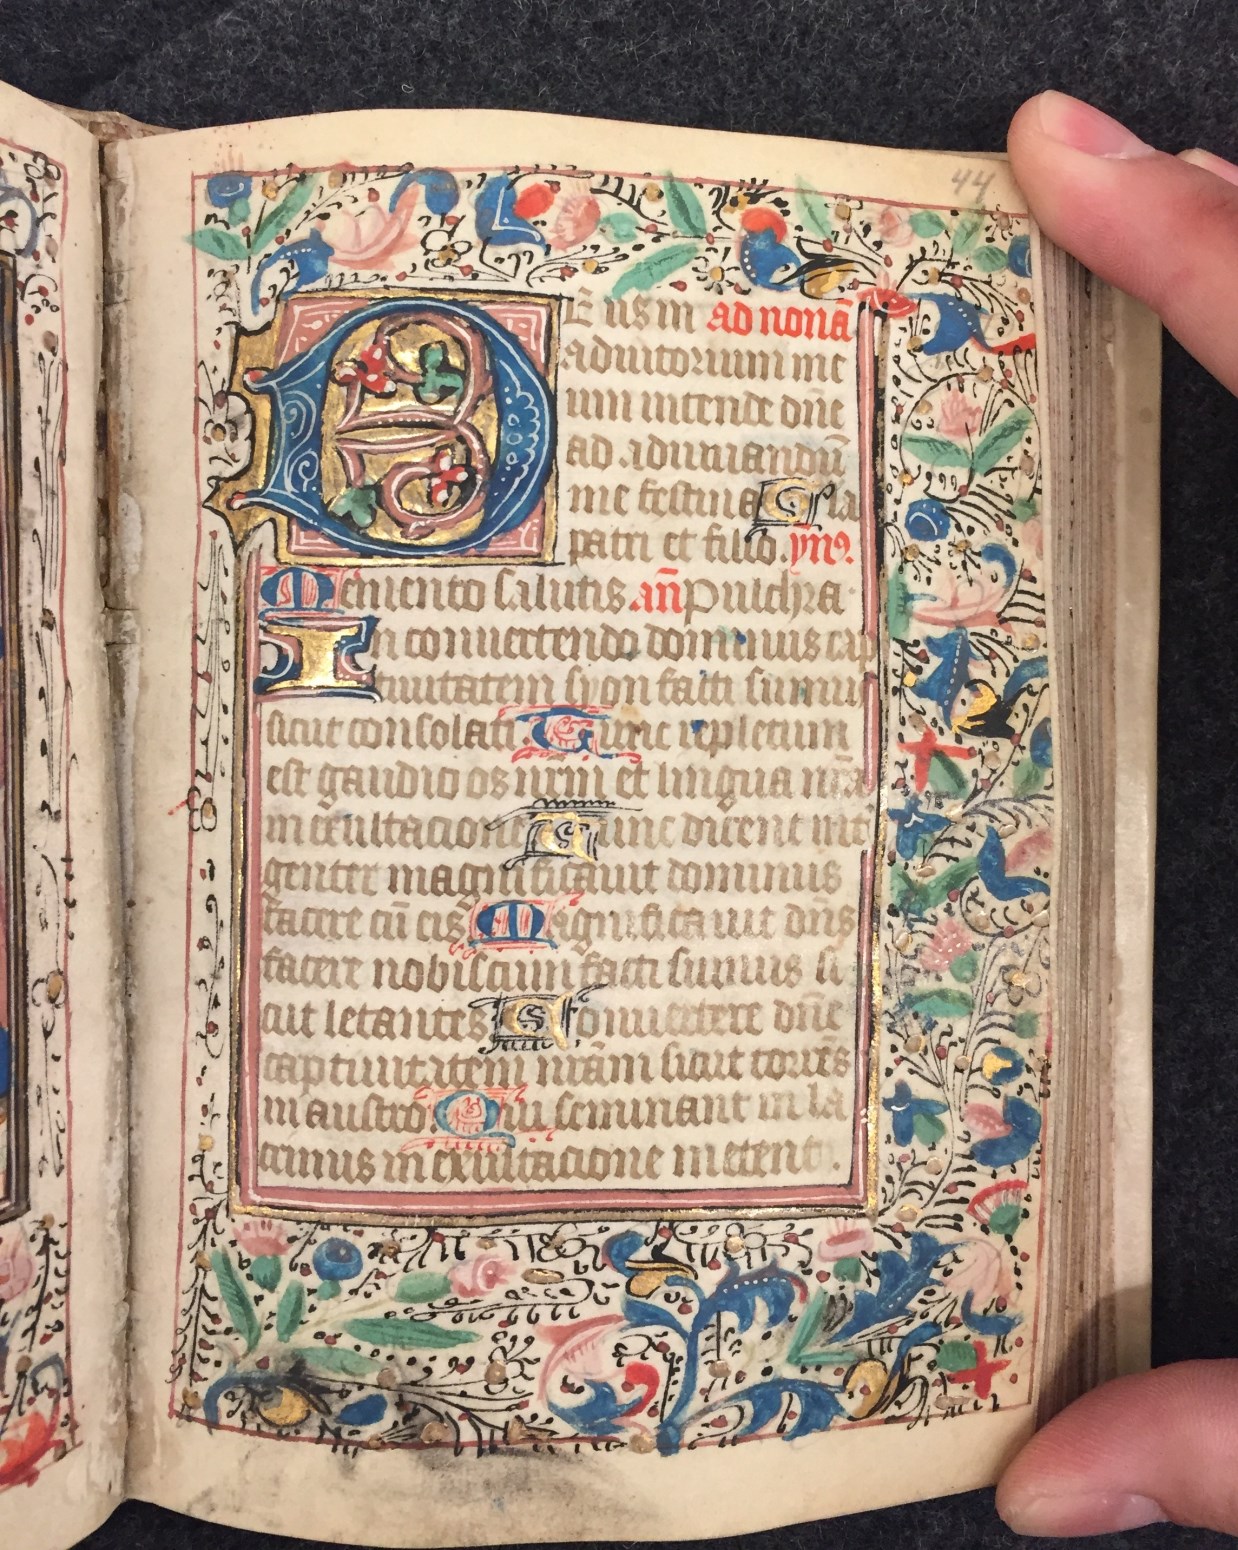 44
Deus in ad nonā
adiutorium me
um intende dn̄e
ad adiuuandū
me festina Gl'ia
patri et filio. ymꝯ.
Memento salutis an̄ Pulchra
In conuertendo dominus cap
tiuitatem syon facti sumus
sicut consolati Tunc repletum
est gaudio os nr̄m et lingua nr̄a
in exultacione Tunc dicent int
gentes magnificauit dominus
facere cū eis Magnificauit dn̄s
facere nobiscum facti sumus si
cut letantes Conuertere dn̄e
captiuitatem nr̄am sicut torrēs
in austro. Qui seminant in la
crimis in exultacione metent.